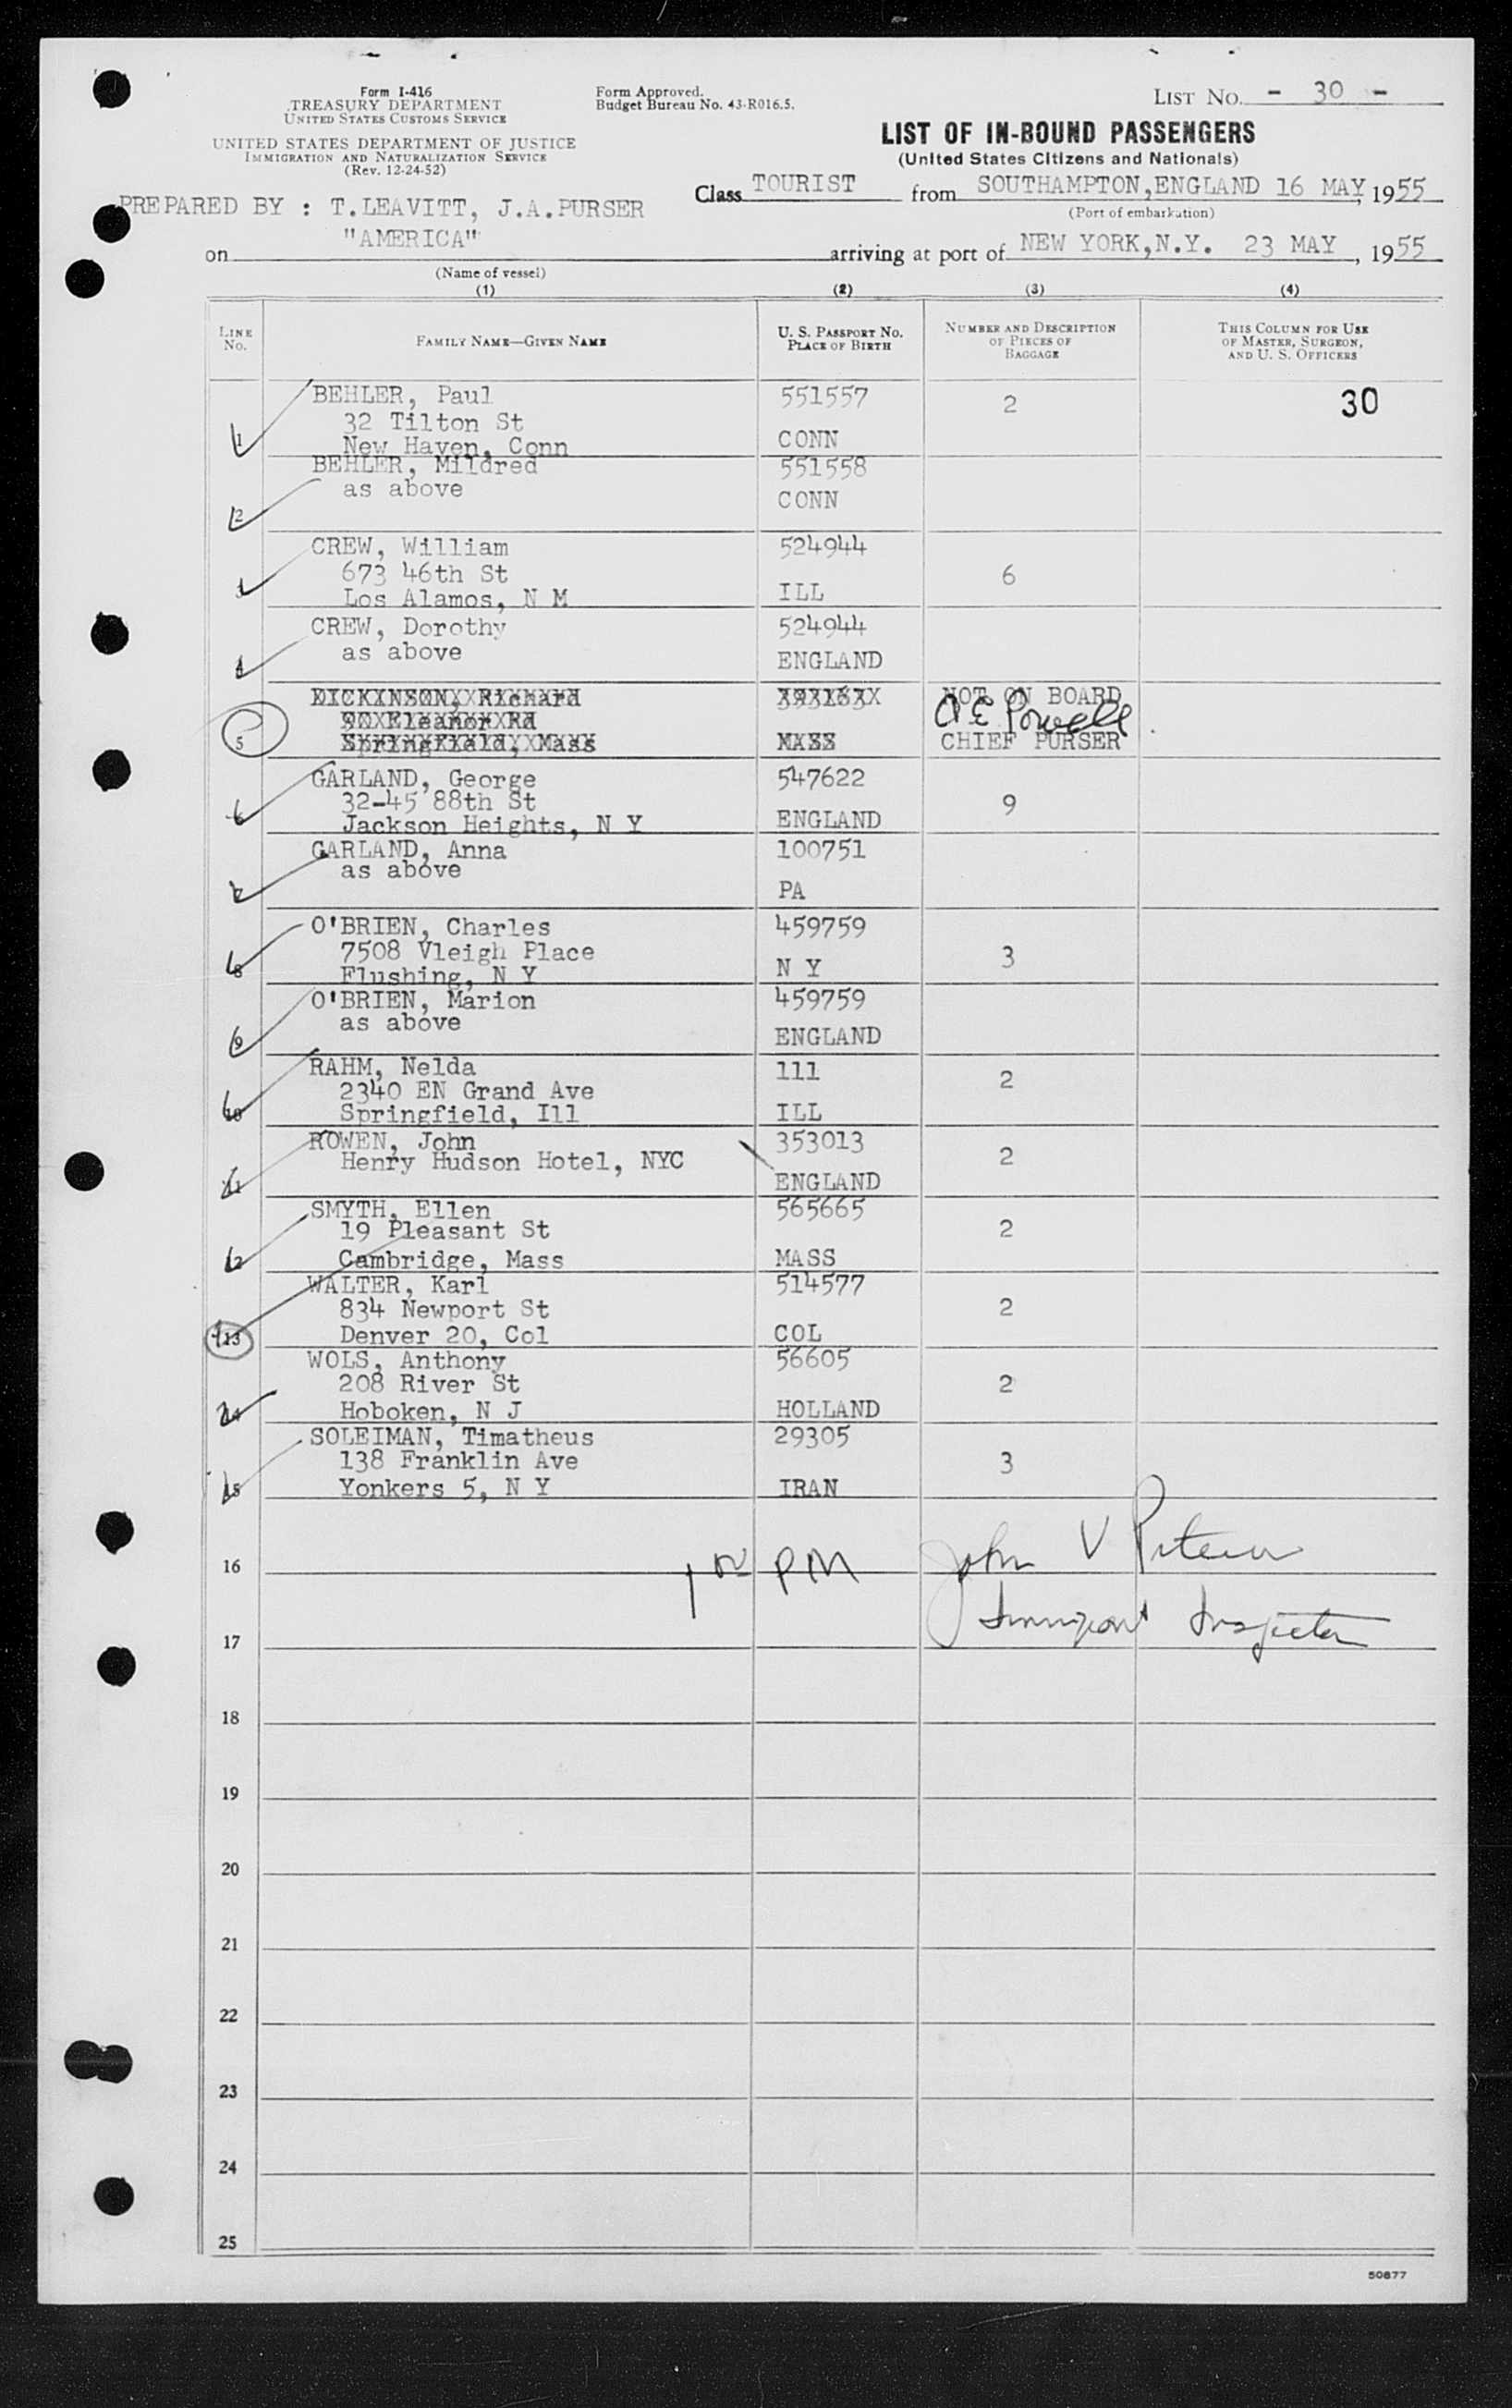 Form I-416
TREASURY DEPARTMENT
UNITED STATES CUSTOMS SERVICE
UNITED STATES DEPARTMENT OF JUSTICE
IMMIGRATION AND NATURALIZATION SERVICE
(Rev. 12-24-52)
Form Approved.
Budget Bureau No. 43-R016.5.
LIST NO. - 30 -
LIST OF IN-BOUND PASSENGERS
(United States Citizens and Nationals)
Class TOURIST from SOUTHAMPTON,ENGLAND 16 MAY, 1955
(Port of embarkation)
PREPARED BY : T.LEAVITT, J.A.PURSER
on "AMERICA" arriving at port of NEW YORK,N.Y. 23 MAY, 1955
(Name of vessel)
(1) (2) (3) (4)
LINE NO.
FAMILY NAME—GIVEN NAME
U. S. PASSPORT NO.
PLACE OF BIRTH
NUMBER AND DESCRIPTION
OF PIECES OF
BAGGAGE
THIS COLUMN FOR USE
OF MASTER, SURGEON,
AND U. S. OFFICERS
1 BEHLER, Paul 551557 2 30
32 Tilton St
New Haven, Conn CONN
2 BEHLER, Mildred 551558
as above CONN
3 CREW, William 524944 6
673 46th St
Los Alamos, N M ILL
4 CREW, Dorothy 524944
as above ENGLAND
5 DICKINSON, Richard NOT ON BOARD
Eleanor Rd A E Powell
Springfield, Mass MASS CHIEF PURSER
6 GARLAND, George 547622 9
32-45 88th St
Jackson Heights, N Y ENGLAND
7 GARLAND, Anna 100751
as above PA
8 O'BRIEN, Charles 459759 3
7508 Vleigh Place
Flushing, N Y N Y
9 O'BRIEN, Marion 459759
as above ENGLAND
10 RAHM, Nelda 111 2
2340 EN Grand Ave
Springfield, Ill ILL
11 ROWEN, John 353013 2
Henry Hudson Hotel, NYC ENGLAND
12 SMYTH, Ellen 565665 2
19 Pleasant St
Cambridge, Mass MASS
13 WALTER, Karl 514577 2
834 Newport St
Denver 20, Col COL
14 WOLS, Anthony 56605 2
208 River St
Hoboken, N J HOLLAND
15 SOLEIMAN, Timatheus 29305 3
138 Franklin Ave
Yonkers 5, N Y IRAN
16 PM John V
17 Immigrant Inspector
18
19
20
21
22
23
24
25
50877